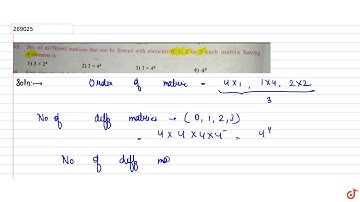 269025
No. of different matrices that can be formed with elements 0, 1, 2 or 3 each matrix having
4 elements is
1) 3 × 2⁴ 2) 2 × 4⁴ 3) 3 × 4⁴ 4) 4⁴
Soln:→ Order of matrix = 4×1, 1×4, 2×2
3
No of diff matrices → (0, 1, 2, 3)
= 4 × 4 × 4 × 4 = 4⁴
No of diff ma
doubtnut